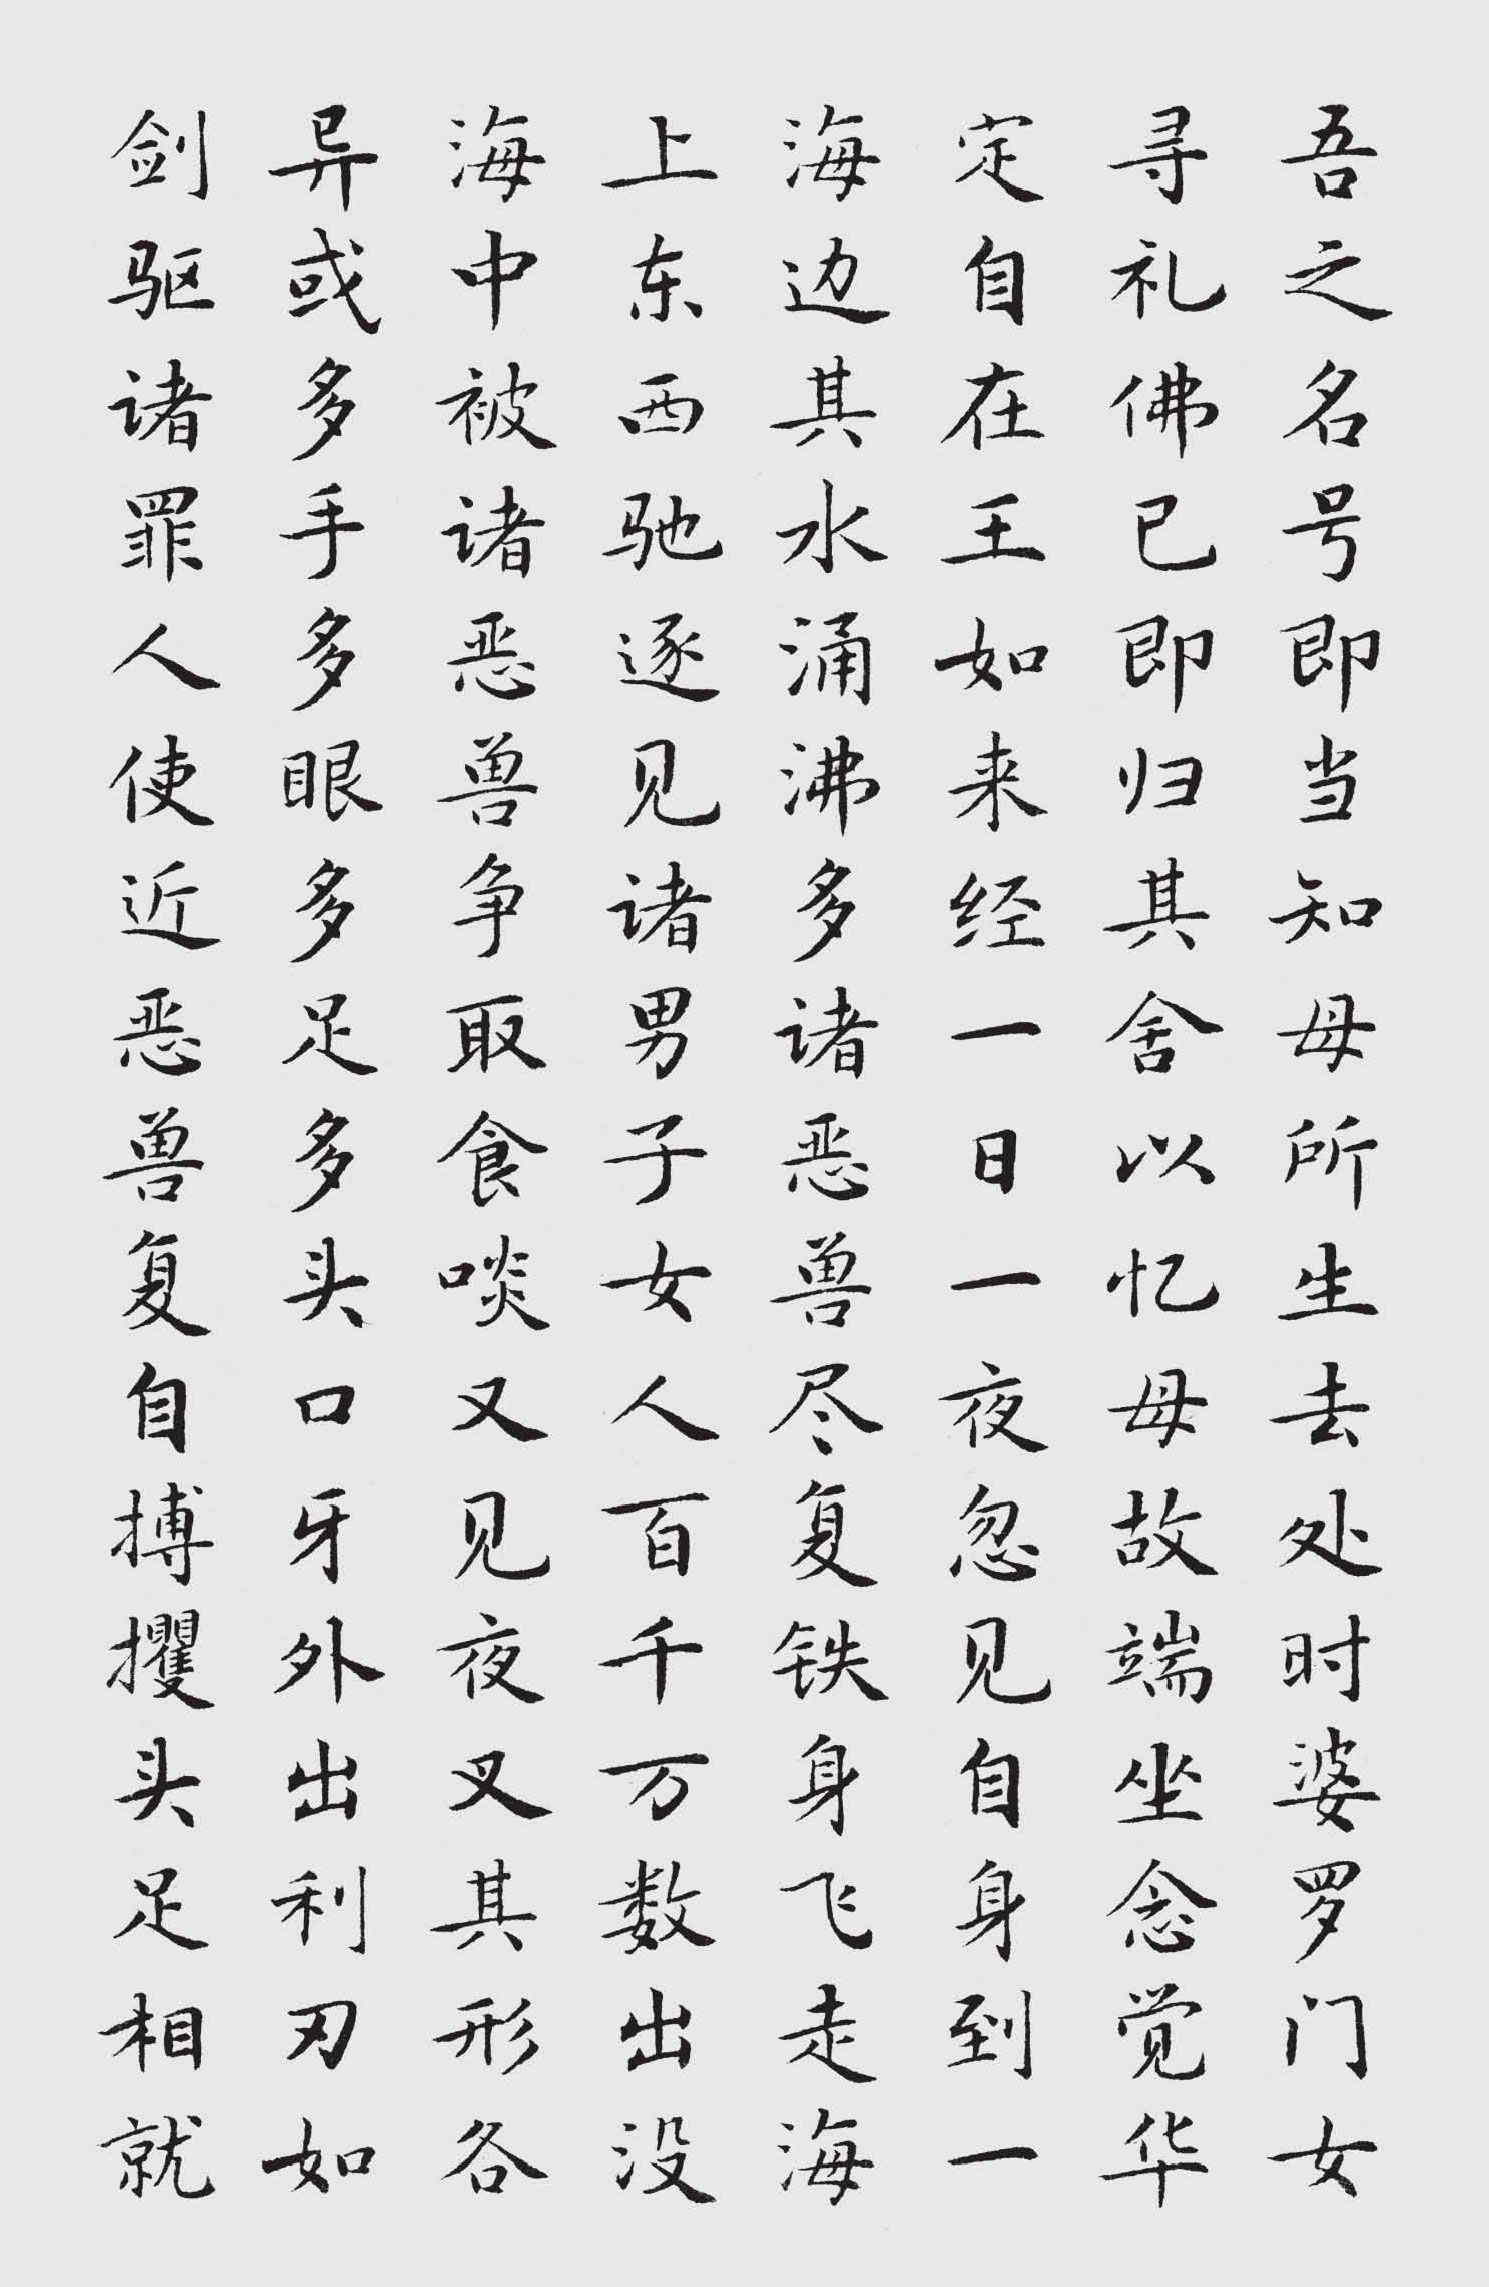 吾之名号即当知母所生去处时婆罗门女
寻礼佛已即归其舍以忆母故端坐念觉华
定自在王如来经一日一夜忽见自身到一
海边其水涌沸多诸恶兽尽复铁身飞走海
上东西驰逐见诸男子女人百千万数出没
海中被诸恶兽争取食啖又见夜叉其形各
异或多手多眼多足多头口牙外出利刃如
剑驱诸罪人使近恶兽复自搏攫头足相就